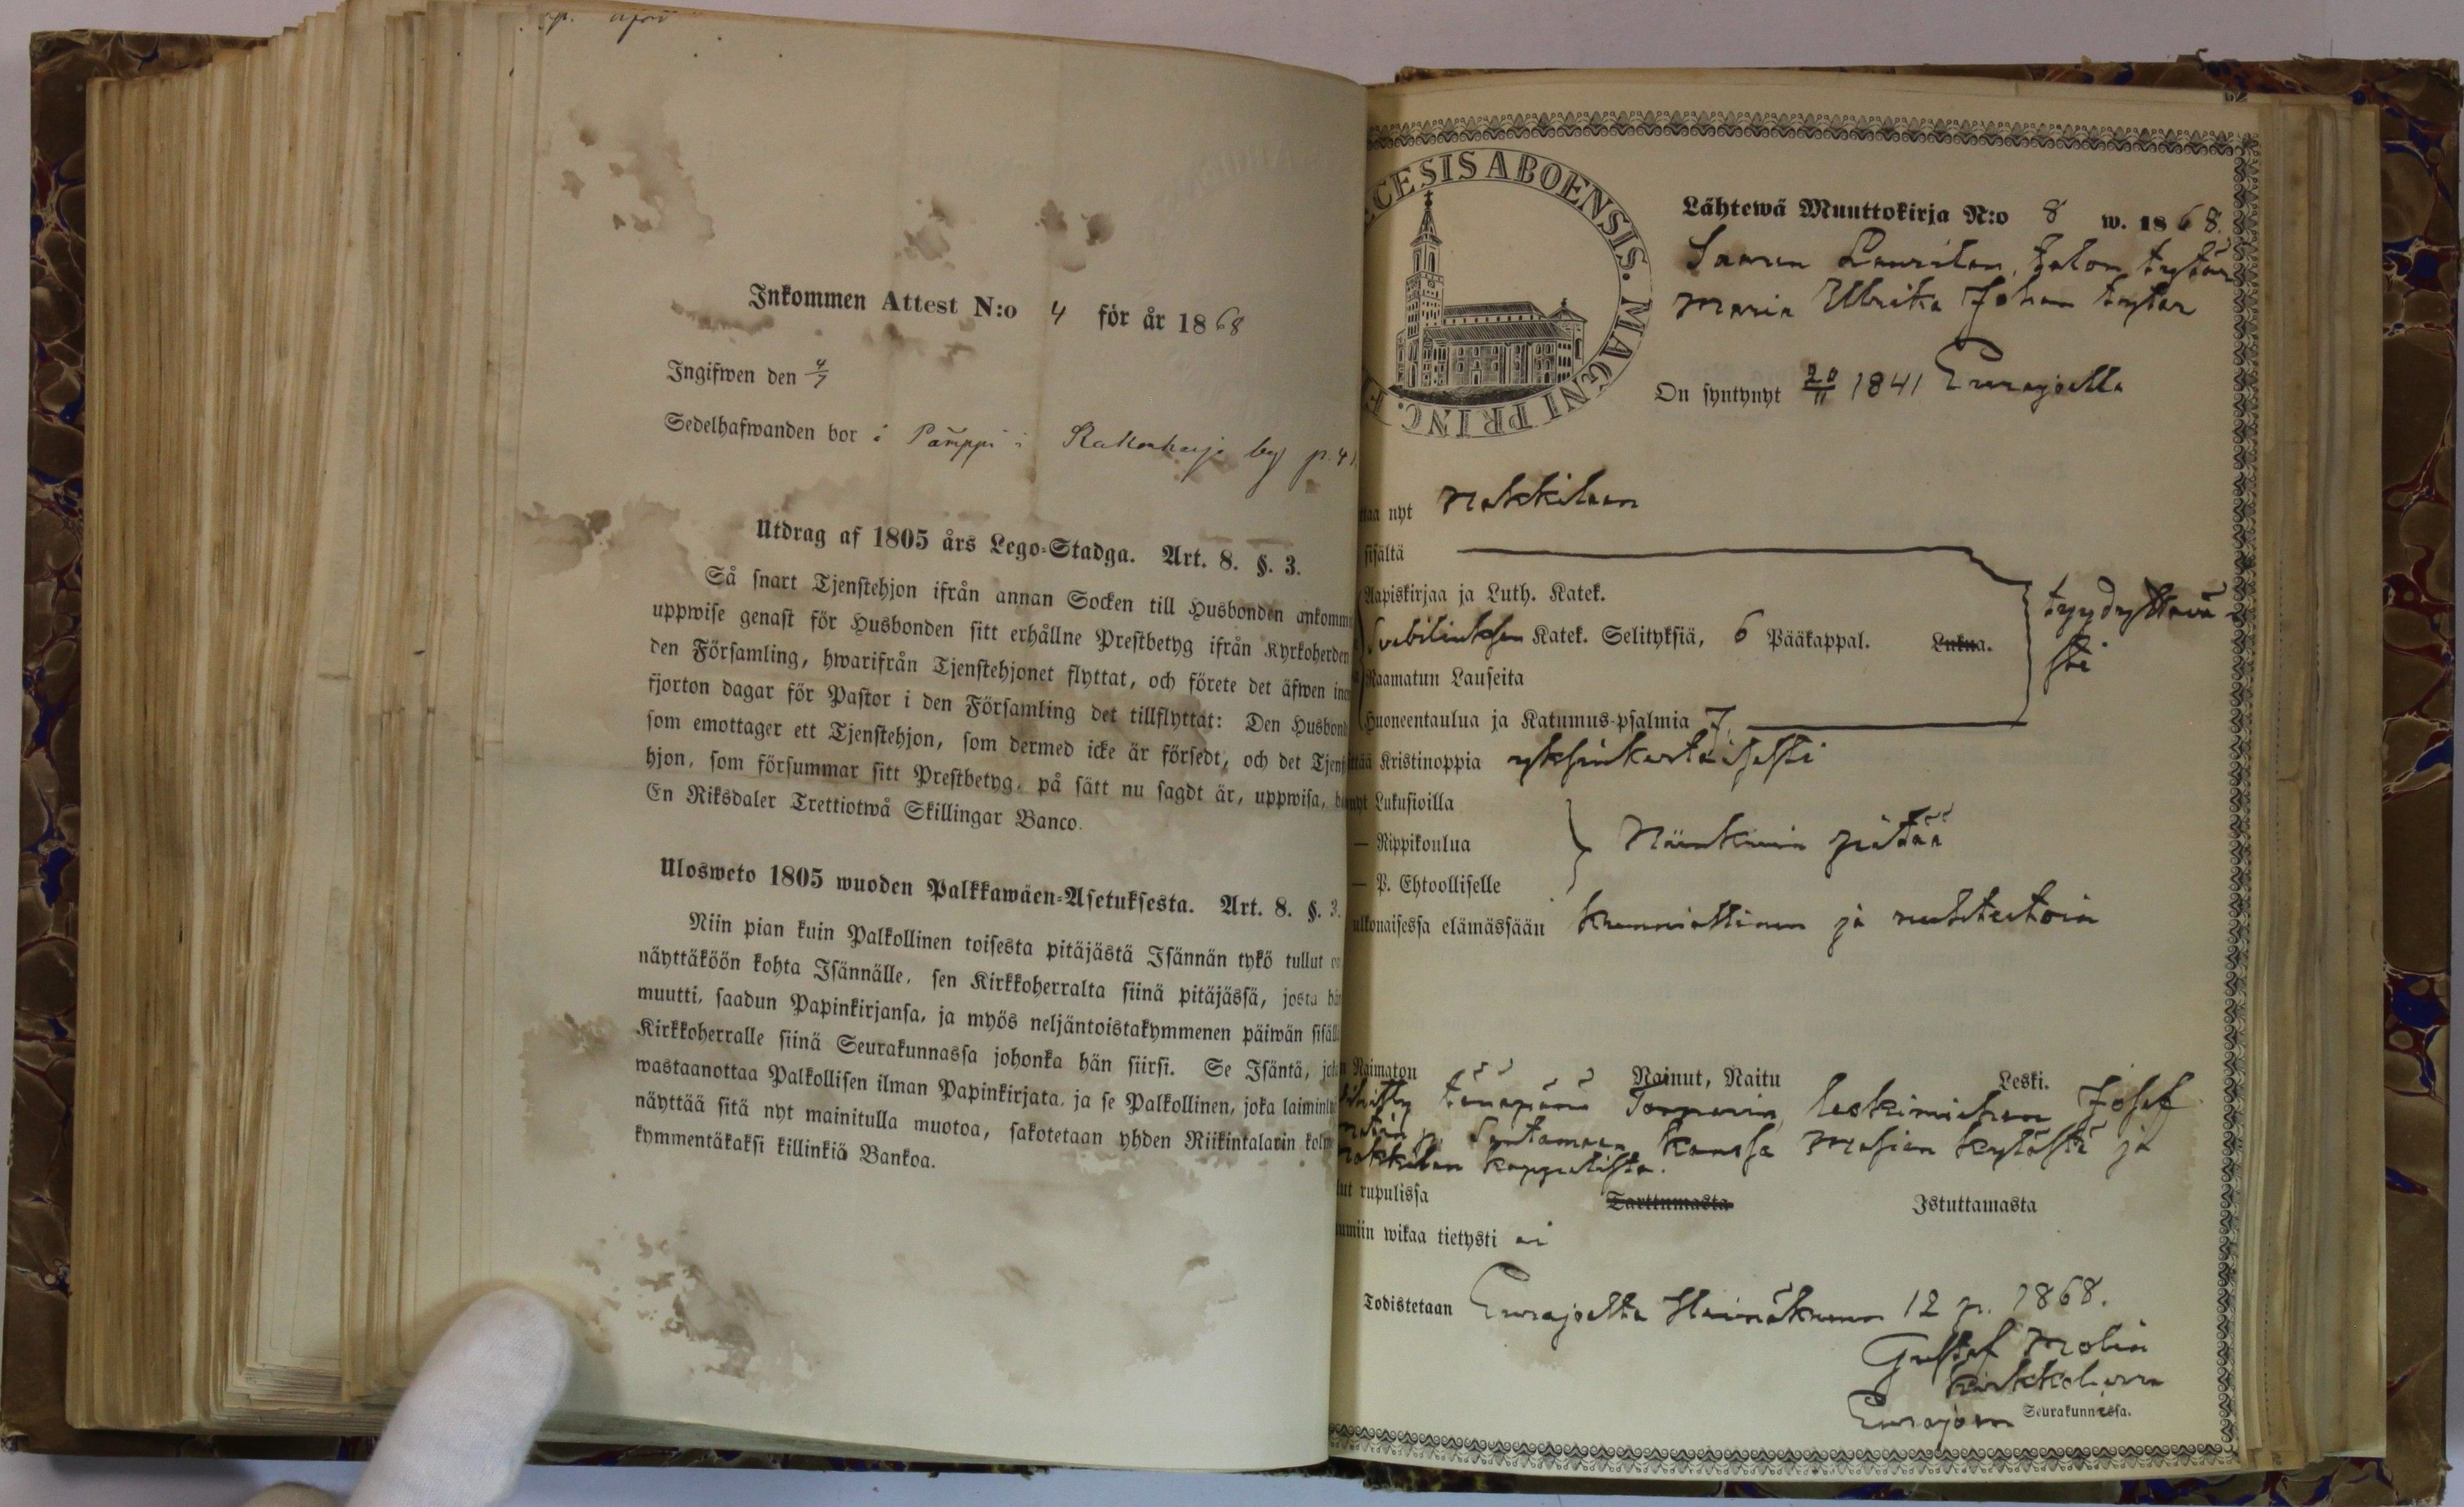 Inkommen Attest N:o 4 för år 1868
Ingifwen den 4/7
Sedelhafwanden bor i Pämppi i by p. 41
Utdrag af 1805 års Lego-Stadga. Art. 8. §. 3.
Så snart Tjenstehjon ifrån annan Socken till Husbonden ankomm
uppwise genast för Husbonden sitt erhållne Prestbetyg ifrån Kyrkoherden
den Församling, hwarifrån Tjenstehjonet flyttat, och förete det äfwen
fjorton dagar för Pastor i den Församling det tillflyttat: Den Husbond
som emottager ett Tjenstehjon, som dermed icke är försedt, och det Tjenst
hjon, som försummar sitt Prestbetyg, på sätt nu sagdt är, uppwisa,
En Riksdaler Trettiotwå Skillingar Banco.
Ulosweto 1805 wuoden Palkkawäen-Asetuksesta. Art. 8. §. 3.
Niin pian kuin Palkollinen toisesta pitäjästä Isännän tykö tullut
näyttäköön kohta Isännälle, sen Kirkkoherralta siinä pitäjässä, josta hän
muutti, saadun Papinkirjansa, ja myös neljäntoistakymmenen päiwän sisällä
Kirkkoherralle siinä Seurakunnassa johonka hän siirsi. Se Isäntä, joka
wastaanottaa Palkollisen ilman Papinkirjata, ja se Palkollinen, joka laiminly
näyttää sitä nyt mainitulla muotoa, sakotetaan yhden Riikintalarin kolm
kymmentäkaksi killinkiä Bankoa.
CESIS ABOENSIS. MAGNI PRINC. F
Lähtewä Muuttokirja N:o 8 w. 1868.
Laurilan talon tytär
Maria Ulrika Johan tytär
On syntynyt 20/11 1841 Eurajoella
taa nyt Nakkilaan
sisältä
Aapiskirjaa ja Luth. Katek.
Svebiliuksen Katek. Selityksiä, 6 Pääkappal. Lukua.
tyydyttävä
sti
Raamatun Lauseita
Huoneentaulua ja Katumus-psalmia 7,
ttää Kristinoppia yksinkertaisesti
nyt Lukusioilla
— Rippikoulua
Niinkuin pitää
— P. Ehtoolliselle
ulkonaisessa elämässään kunniallinen ja nuhteetoin
Naimaton Nainut, Naitu Leski.
tänäpänä Torparin leskimiehen Josef
kanssa Masian kylästä ja
Nakkilan kappelista.
lut rupulissa Tarttumasta Istuttamasta
mmiin wikaa tietysti ei
Todistetaan Eurajoella Heinäkuun 12 p. 1868.
Gustaf Molin
Kirkkoherra
Eurajoen Seurakunnassa.